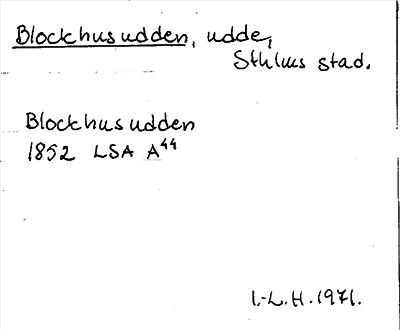 Blockhusudden, udde,
Sthlms stad.
Blockhusudden
1852 LSA A44
I.-L.H. 1971.